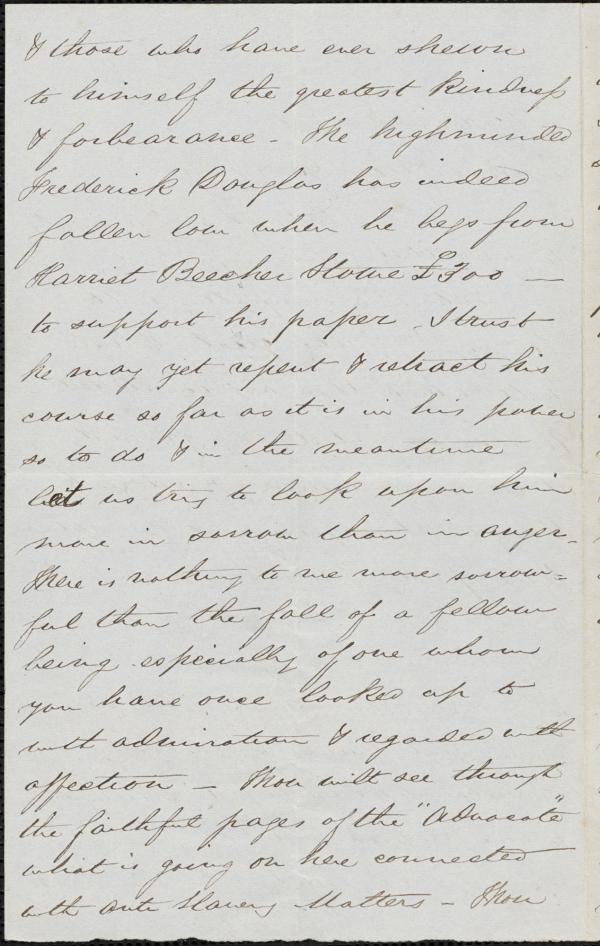 & those who have ever shewn
to himself the greatest kindness
& forbearance - The highminded
Frederick Douglas has indeed
fallen low when he begs from
Harriet Beecher Stowe £300 —
to support his paper. I trust
he may yet repent & retract his
course so far as it is in his power
so to do & in the meantime
let us try to look upon him
more in sorrow than in anger.
There is nothing to me more sorrow=
ful than the fall of a fellow
being especially of one whom
you have once looked up to
with admiration & regarded with
affection - Thou wilt see through
the faithful pages of the "Advocate"
what is going on here connected
with anti Slavery Matters - Thou